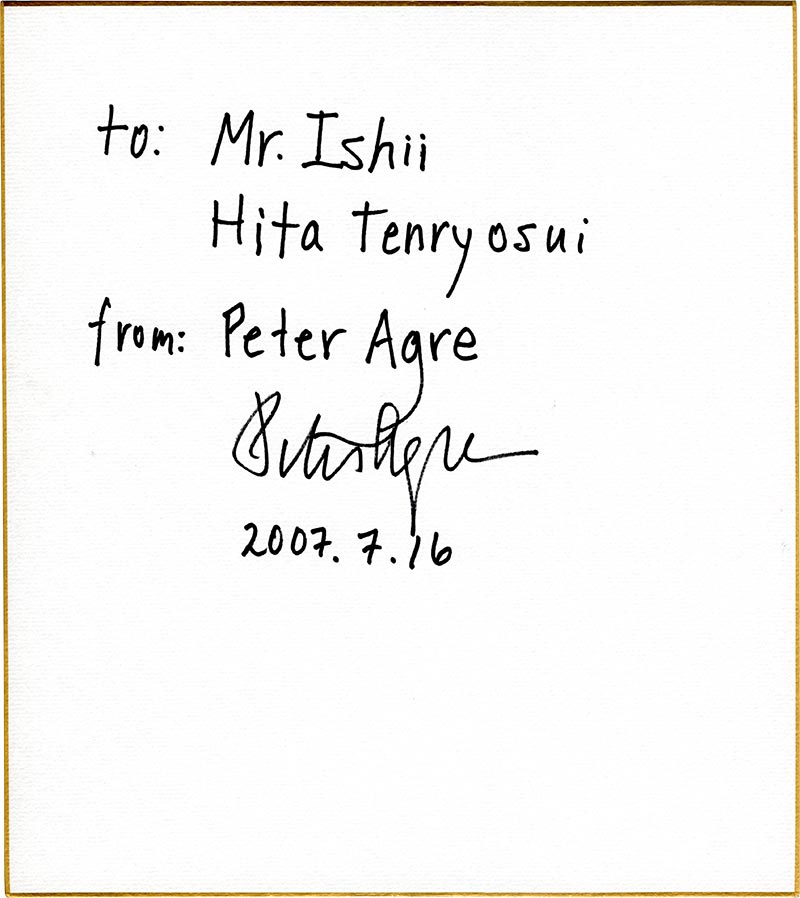 to: Mr. Ishii
Hita Tenryosui
from: Peter Agre
Peter Agre
2007. 7. 16